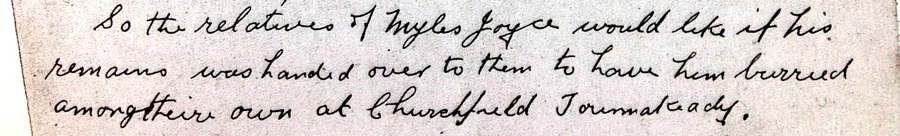 So the relatives of Myles Joyce would like if his
remains was handed over to them to have him burried
amongtheire own at Churchfield Tourmakeady.